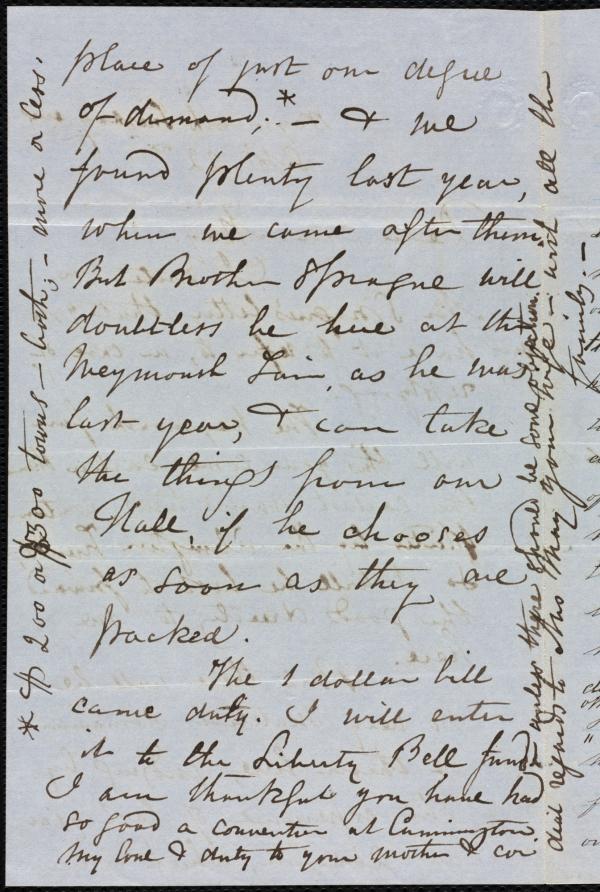 place of just our degree
of demand;* — & we
found plenty last year,
when we came after them.
But Brother Sprague will
doubtless be here at the
Weymouth Fair, as he was
last year, & can take
the things from our
Hall, if he chooses
as soon as they are
packed.
The 1 dollar bill
came duly. I will enter
it to the Liberty Bell fund
I am thankful you have had
so good a convention at Cummington
My love & duty to your mother & cor
dial regards to Mrs May your wife — with all the
family. —
* $200 or $300 towns — both; — more or less.
unless there should be some objection